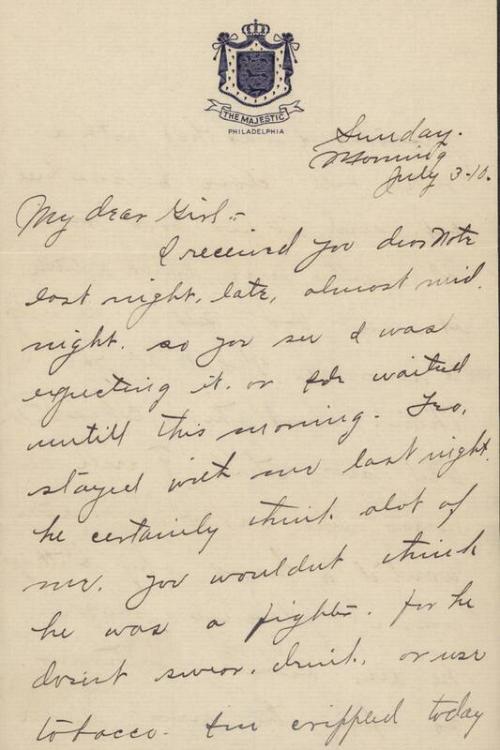 THE MAJESTIC
PHILADELPHIA
Sunday.
Morning
July 3-10.
My dear Girl:-
I received you dear Note
last night, late, almost mid.
night. so you see I was
expecting it. or waited
untill this morning. Leo,
stayed with me last night.
he certainly think alot of
me. you wouldnt think
he was a fighter. for he
doesnt swear. drink. or use
tobacco. crippled today